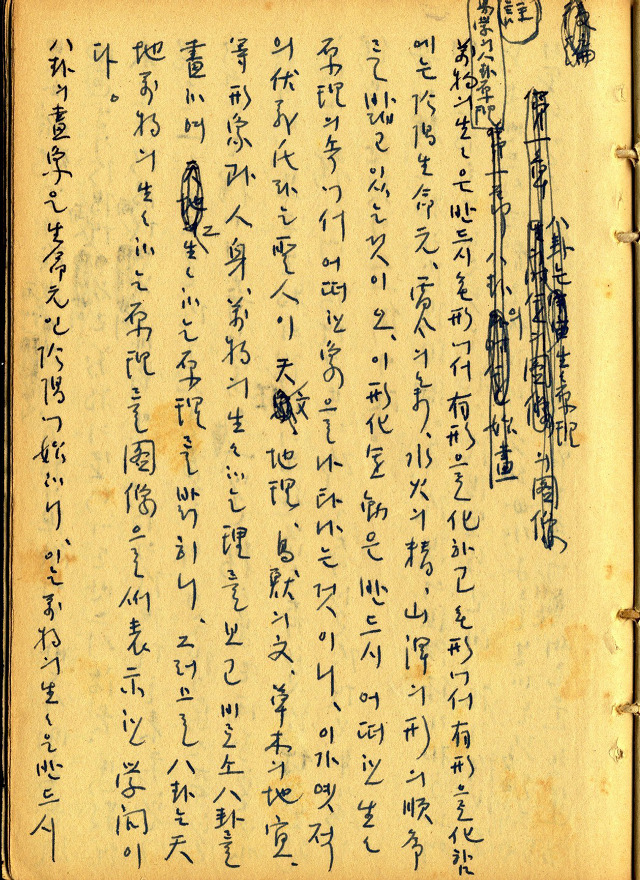 後編
第一章 八卦는 生生原理의 圖像
易學의 八卦原理
八卦의 始畫
萬物의 生生은 반드시 無形에서 有形으로 化하고 無形에서 有形으로 化함
에는 陰陽生命元, 雷風의 氣, 水火의 精, 山澤의 形의 順序
를 밟고 있는것이오, 이 形化운動은 반드시 어떠한 生生
原理의 속에서 어떠한 象을 나타나는 것이니, 이가 옛적
의 伏羲氏라는 聖人이 天文 地理, 鳥獸의 文, 草木의 地宜,
等 形象과 人身, 萬物의 生生하는 理를 보고 비로소 八卦를
畫하여 生生하는 原理를 밝히니, 그러므로 八卦는 天
地萬物의 生生하는 原理를 圖像으로써 表示한 學問이
다。
八卦의 畫象은 生命元인 陰陽에 始하니, 이는 萬物의 生生은 반드시